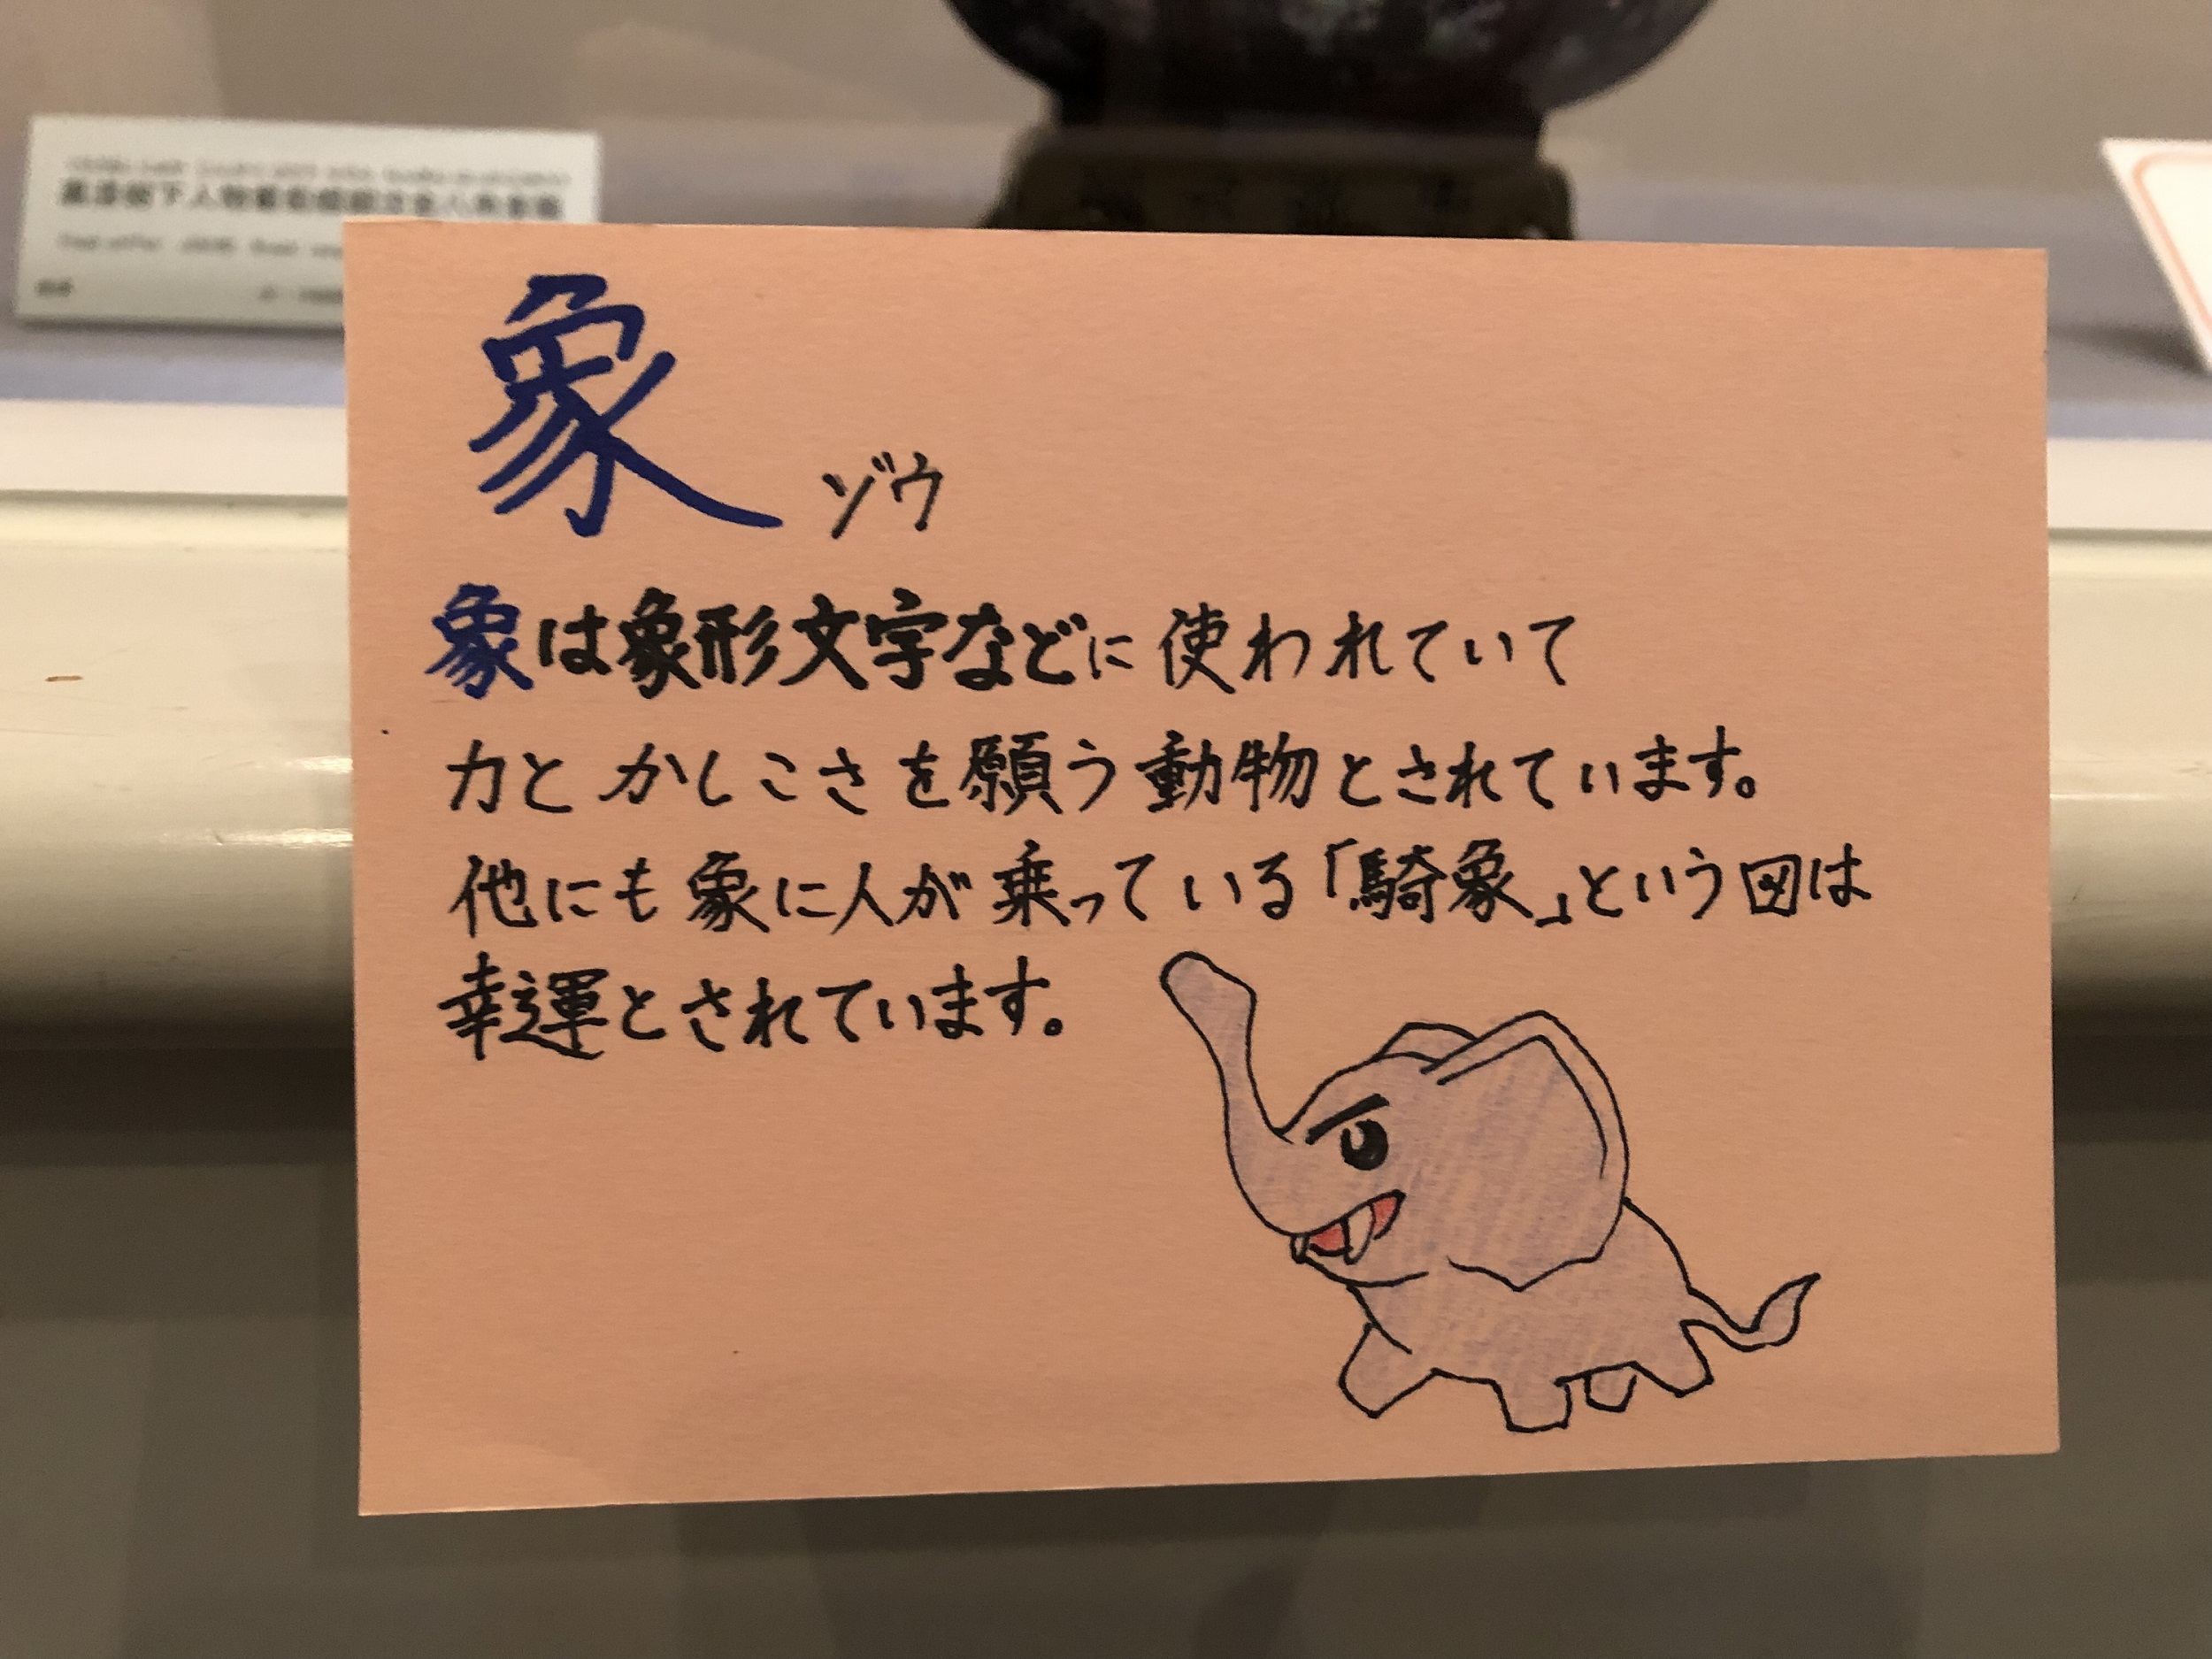 象 ゾウ
象は象形文字などに使われていて
力とかしこさを願う動物とされています。
他にも象に人が乗っている「騎象」という図は
幸運とされています。